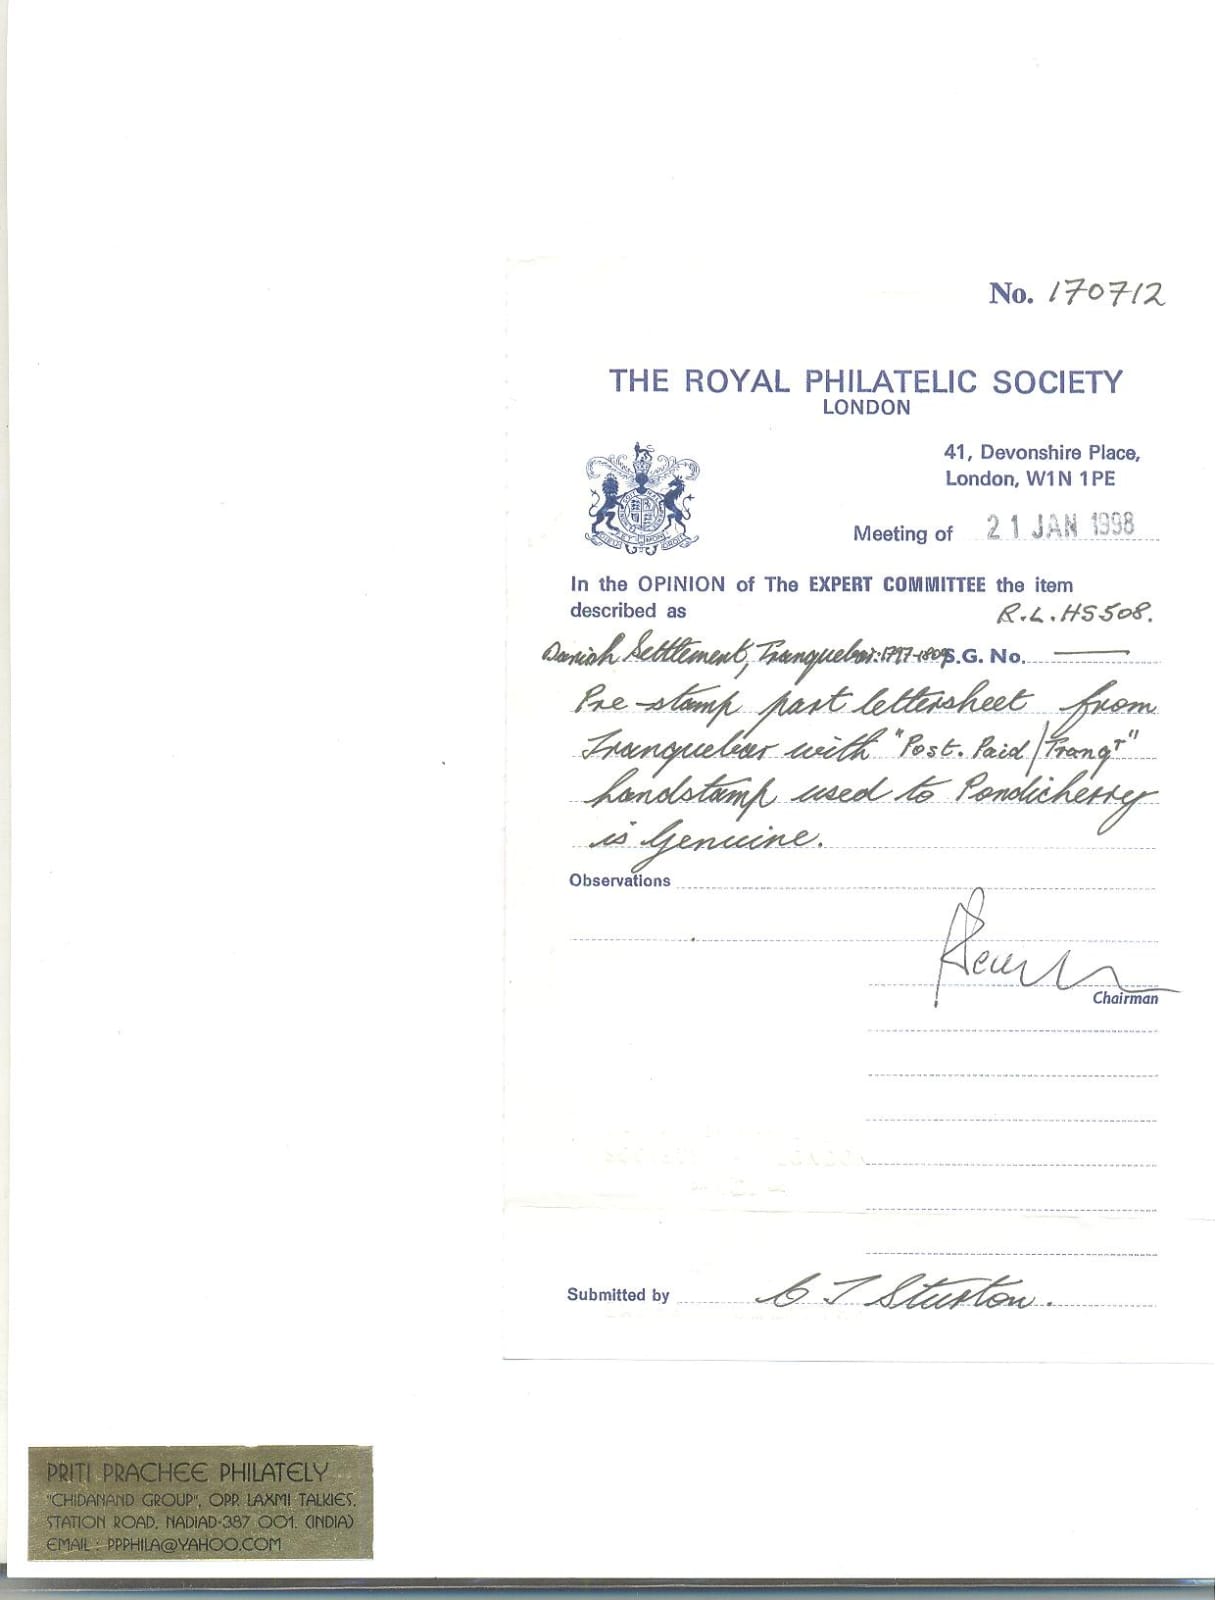 No. 170712
THE ROYAL PHILATELIC SOCIETY
LONDON
41, Devonshire Place,
London, W1N 1PE
Meeting of 21 JAN 1998
In the OPINION of The EXPERT COMMITTEE the item
described as R.L.HS508.
Danish Settlement, Tranquebar: 1797-1809 S.G. No. —
Pre-stamp part lettersheet from
Tranquebar with "Post. Paid/Trangr"
handstamp used to Pondicherry
is Genuine.
Observations
Chairman
Submitted by C T Sturton.
PRITI PRACHEE PHILATELY
"CHIDANAND GROUP", OPP. LAXMI TALKIES,
STATION ROAD, NADIAD-387 001. (INDIA)
EMAIL : PPPHILA@YAHOO.COM